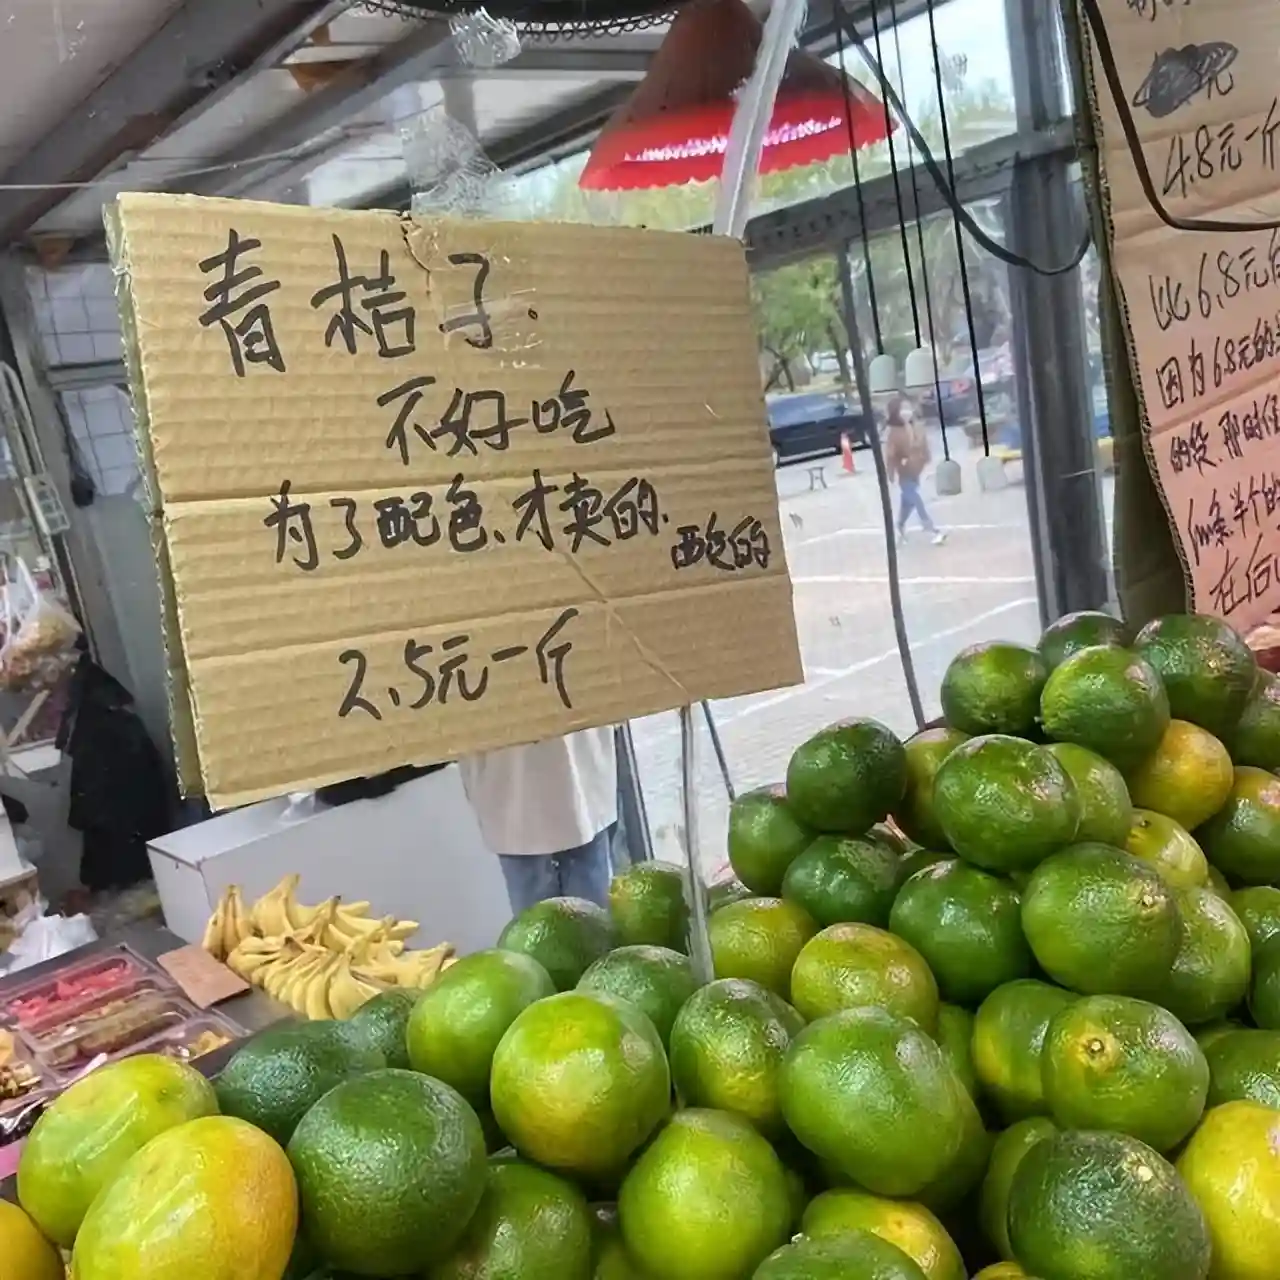 青桔子.
不好吃
为了配色、才卖的.
酸的
2.5元一斤
元
4.8元一斤
比6.8元的
因为6.8元的
的货.那时候
半个的
在后